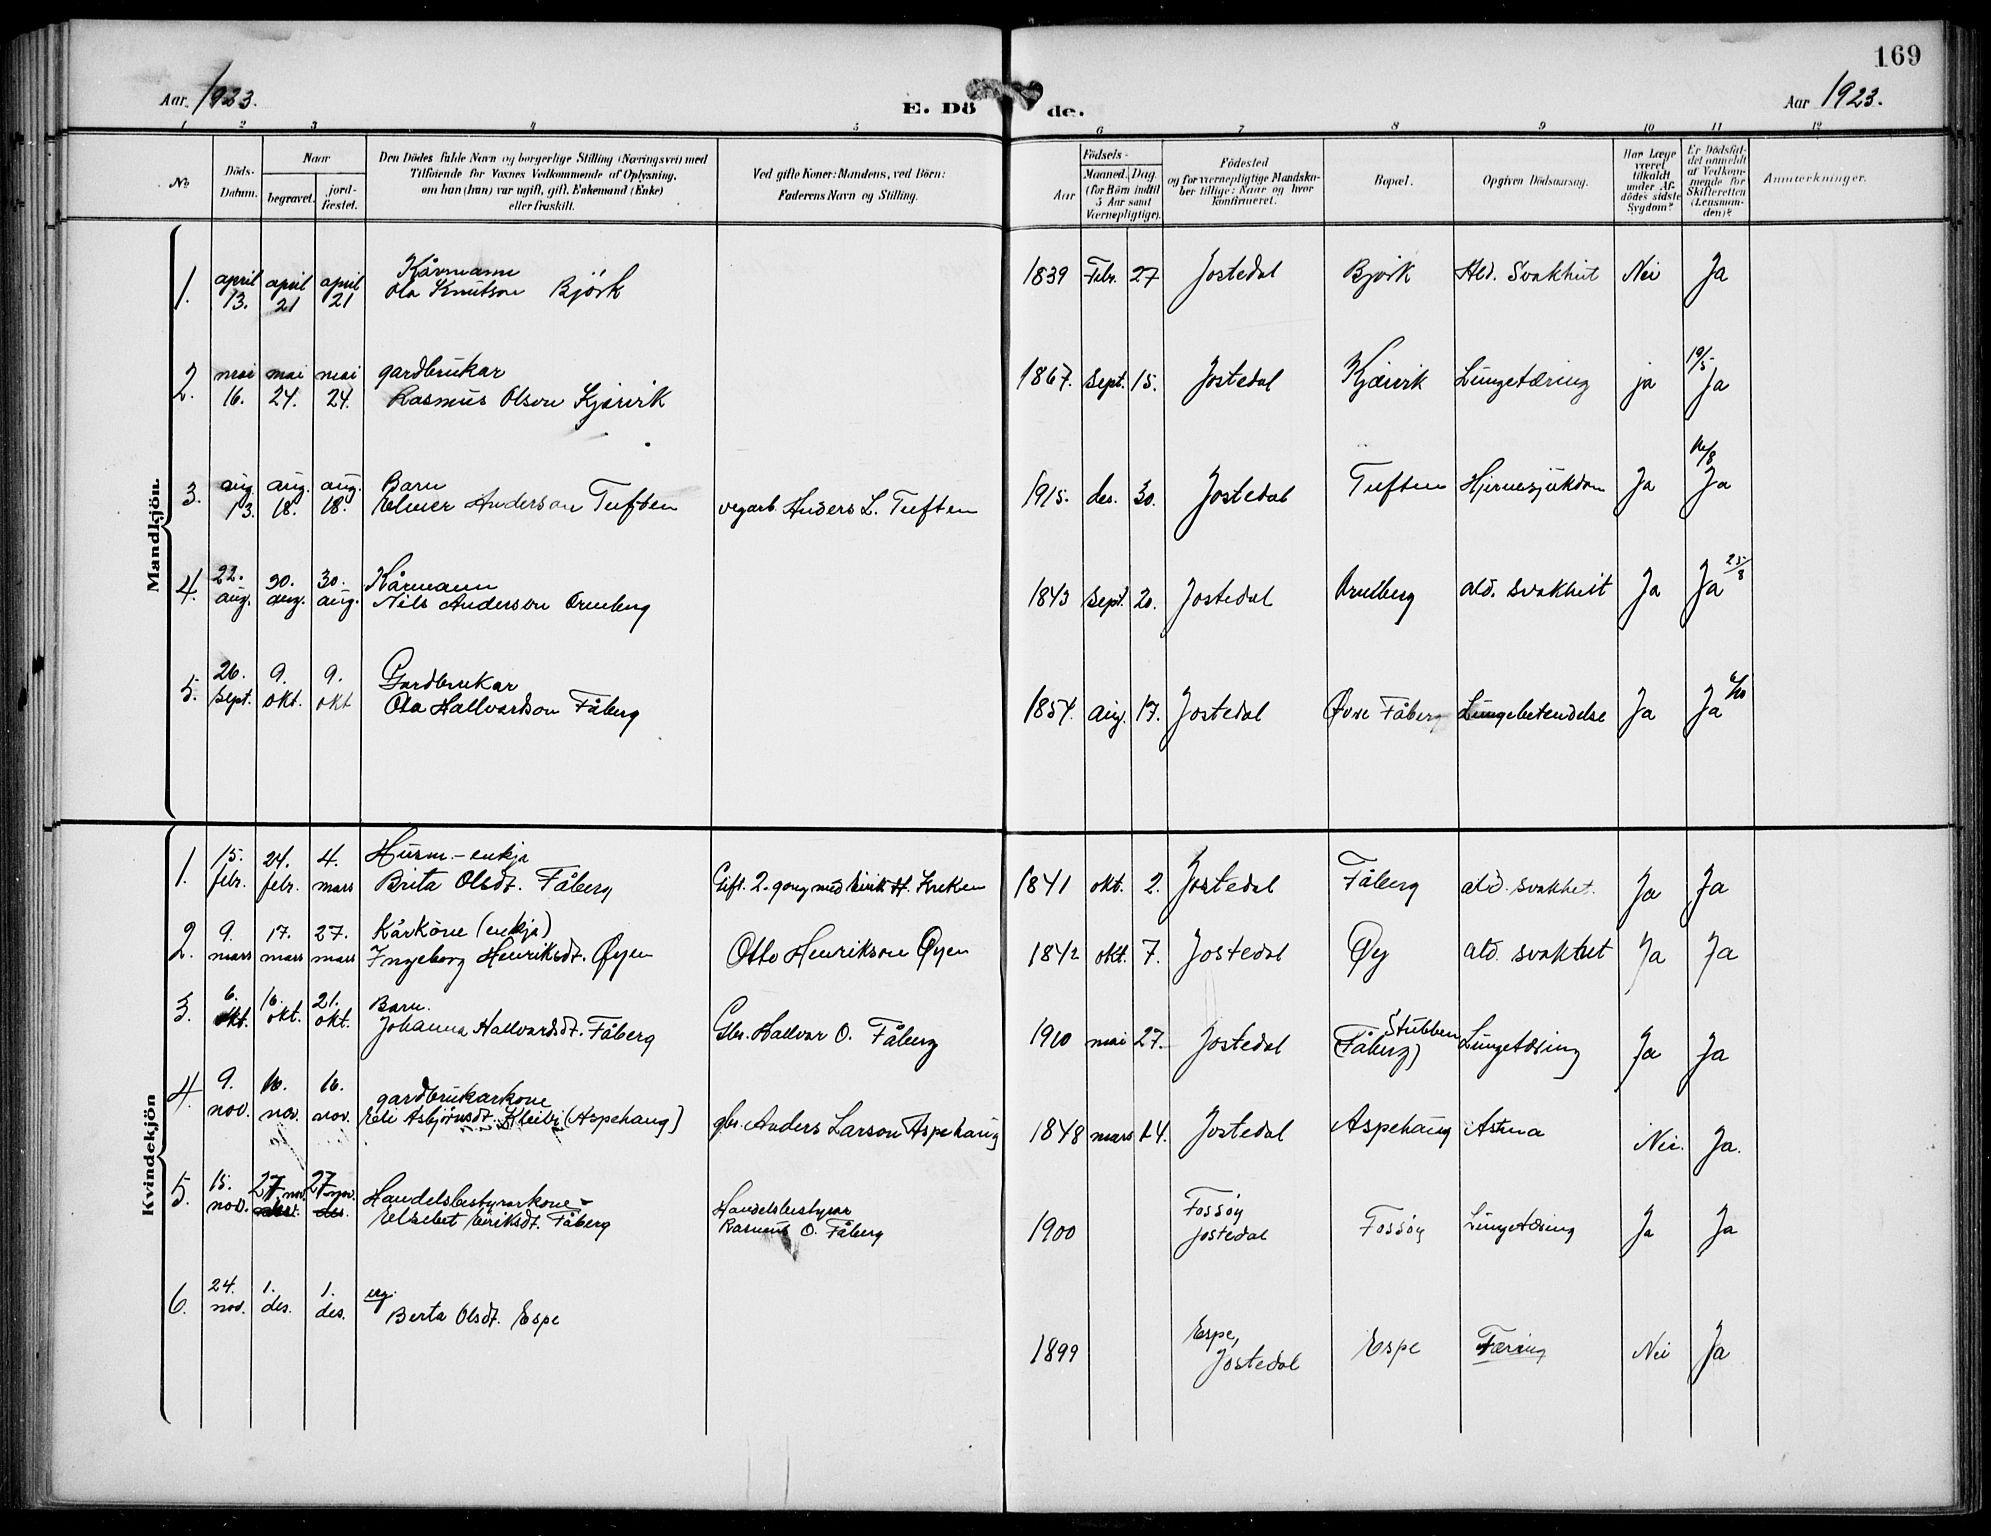 169
Aar 1923.
E. Dö de.
Aar 1923.
1 2 3 4 5 6 7 8 9 10 11 12
No.
Döds-Datum.
Naar
begravet.
jord-fæstet.
Den Dödes fulde Navn og borgerlige Stilling (Næringsvei) med
Tilföiende for Voxnes Vedkommende af Oplysning,
om han (hun) var ugift, gift, Enkemand (Enke)
eller fraskilt.
Ved gifte Koner: Mandens, ved Börn:
Faderens Navn og Stilling.
Födsels-
Aar
Maaned. Dag.
(for Börn indtil
5 Aar samt
Værnepligtige).
Födested
og for værnepligtige Mandska-
ber tillige: Naar og hvor
konfirmeret.
Bopæl.
Opgiven Dödsaarsag.
Har Læge
været
tilkaldt
under Af-
dödes sidste
Sygdom?
Er Dödsfal-
det anmeldt
af Vedkom-
mende for
Skifteretten
(Lensman-
den)?
Anmærkninger.
Mandkjön.
1. april 13. april 21 april 21 Kårmann
Ola Knutson Bjørk 1839 Febr. 27 Jostedal Bjørk Ald. Svakheit Nei Ja
2. mai 16. mai 24. mai 24. gardbrukar
Rasmus Olson Kjervik 1867. Sept. 15. Jostedal Kjervik Lungetæring ja 19/5 Ja
3. aug. 13. aug. 18. aug. 18. Barn
Elmer Anderson Tuften vegarb. Anders L. Tuften 1915. des. 30. Jostedal Tuften Hjernesjukdom Ja 16/8 Ja
4. 22. aug. 30. aug. 30. aug. Kårmann
Nils Anderson Ormberg 1843 Sept. 20. Jostedal Ormberg ald. svakheit Ja Ja 25/8
5. 26. Sept. 9. okt. 9. okt Gardbrukar
Ola Hallvardson Fåberg 1854. aug. 17. Jostedal Øvre Fåberg Lungebetendelse Ja Ja
Kvindekjön
1. 15. febr. 24. febr. 4. mars Husm.-enkja
Brita Olsdt. Fåberg Gift. 2. gong med Eirik H. Kreken 1841 okt. 2. Jostedal Fåberg ald. svakhet. Ja Ja
2. 9. mars 17. mars 27. mars Kårkone (enkja)
Ingeborg Henriksdt. Øyen Otto Henrikson Øyen 1842 okt. 7. Jostedal Øy ald. svakhet Ja Ja
3. 6. okt. 16. okt. 21. okt. Barn.
Johanna Hallvardsdt. Fåberg Gbr. Hallvar O. Fåberg 1910 mai 27. Jostedal Stubben (Fåberg) Lungetæring Ja Ja
4. 9. nov. 16. nov. 16. nov. gardbrukarkone
Eli Asbjørnsdt. Kleibr (Aspehaug) gbr. Anders Larson Aspehaug 1848 mars 14. Jostedal Aspehaug Astma Nei. Ja.
5. 15. nov. 27. nov. 27 nov. des. Handelsbestyrarkone
Elisebet Eiriksdt. Fåberg Handelsbestyrar Rasmus O. Fåberg 1900 Fossøy Jostedal Fossøy Lungetæring Ja Ja
6. 24. nov. 1. des. 1. des. ug.
Berta Olsdt. Espe 1899 Espe, Jostedal Espe Tæring Nei Ja